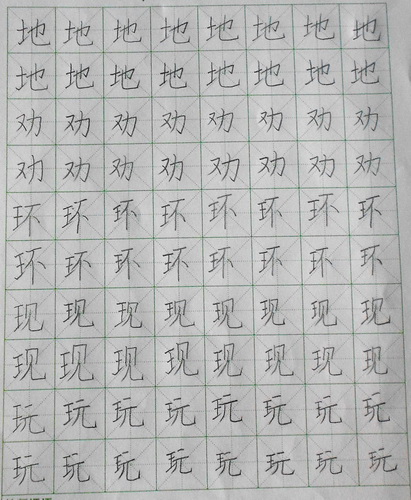 地地地地地地地地
地地地地地地地地
劝劝劝劝劝劝劝劝
劝劝劝劝劝劝劝劝
环环环环环环环环
环环环环环环环环
现现现现现现现现
现现现现现现现现
玩玩玩玩玩玩玩玩
玩玩玩玩玩玩玩玩